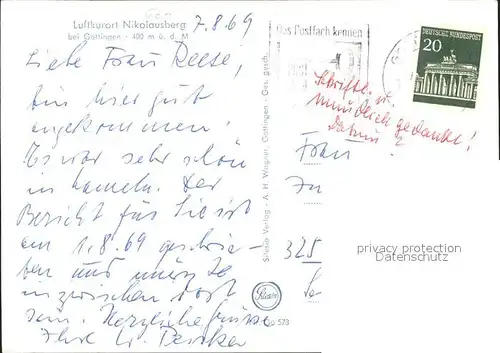 Luftkurort Nikolausberg
bei Göttingen - 400 m ü. d. M
7.8.69
Liebe Frau Reese,
bin hier gut
angekommen!
Es war sehr schön
in Hameln. Der
Bericht für Sie ist
am 1.8.69 geschrie-
ben und müsste
inzwischen dort
sein. Herzliche Grüsse
Ihre
Stücke Verlag - A. H. Wagner, Göttingen - Ges. gesch.
Das Postfach kennen
DEUTSCHE BUNDESPOST
20
Schriftl. u.
mündlich gedankt!
Datum?
Frau
325
privacy protection
Datenschutz
573